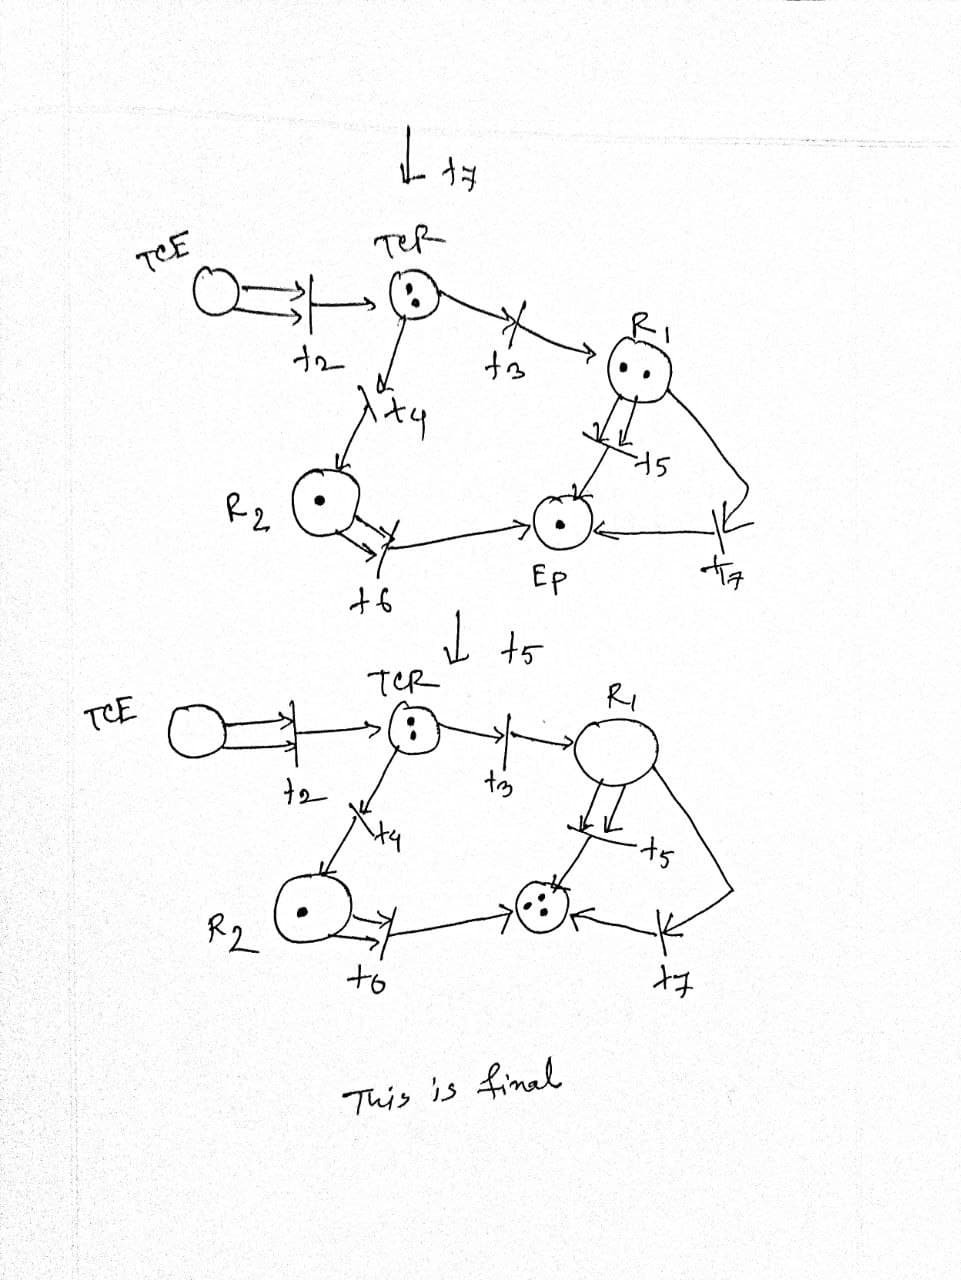 t7
TCE
TCR
R1
t2
t3
t4
t5
R2
EP
t7
t6
t5
TCR
R1
TCE
t2
t3
t4
t5
R2
t6
t7
This is final